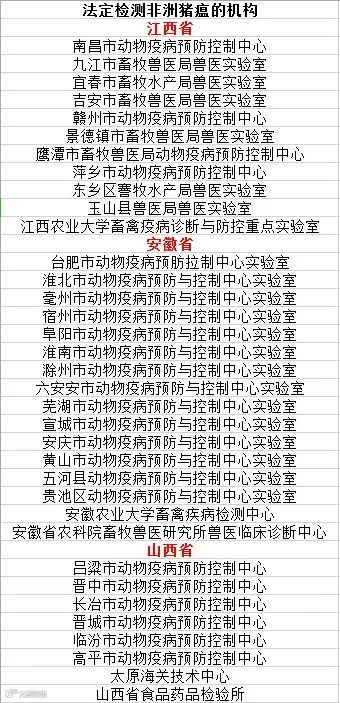 法定检测非洲猪瘟的机构
江西省
南昌市动物疫病预防控制中心
九江市畜牧兽医局兽医实验室
宜春市畜牧水产局兽医实验室
吉安市畜牧兽医局兽医实验室
赣州市动物疫病预防控制中心
景德镇市畜牧兽医局兽医实验室
鹰潭市畜牧兽医局动物疫病预防控制中心
萍乡市动物疫病预防控制中心
东乡区謇牧水产局兽医实验室
玉山县兽医局兽医实验室
江西农业大学畜禽疫病诊断与防控重点实验室
安徽省
台肥市动物疫病预肪拉制中心实验室
淮北市动物疫病预防与控制中心实验室
毫州市动物疫病预防与控制中心实验室
宿州市动物疫病预防与控制中心实验室
阜阳市动物疫病预防与控制中心实验室
淮南市动物疫病预防与控制中心实验室
滁州市动物疫病预防与控制中心实验室
六安安市动物疫病预防与控制中心实验室
芜湖市动物疫病预防与控制中心实验室
宣城市动物疫病预防与控制中心实验室
安庆市动物疫病预防与控制中心实验室
黄山市动物疫病预防与控制中心实验室
五河县动物疫病预防与控制中心实验室
贵池区动物疫病预防与控制中心实验室
安徽农业大学畜禽疾病检测中心
安徽省农科院畜牧兽医研究所兽医临床诊断中心
山西省
吕梁市动物疫病预防控制中心
晋中市动物疫病预防控制中心
长冶市动物疫病预防控制中心
晋城市动物疫病预防控制中心
临汾市动物疫病预防控制中心
高平市动物疫病预防控制中心
太原海关技术中心
山西省食品药品检验所